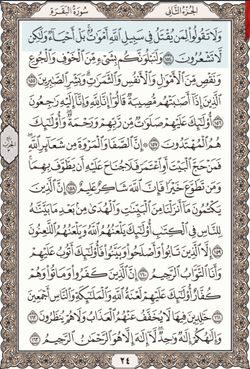 الجزء الثاني
سورة البقرة
ولا تقولوا لمن يقتل في سبيل الله أموت بل أحياء ولكن
لا تشعرون ١٥٤ ولنبلونكم بشيء من الخوف والجوع
ونقص من الأمول والأنفس والثمرت وبشر الصبرين ١٥٥
الذين إذا أصبتهم مصيبة قالوا إنا لله وإنا إليه رجعون
١٥٦ أولئك عليهم صلوت من ربهم ورحمة وأولئك
هم المهتدون ١٥٧ إن الصفا والمروة من شعائر الله
فمن حج البيت أو اعتمر فلا جناح عليه أن يطوف بهما
ومن تطوع خيرا فإن الله شاكر عليم ١٥٨ إن الذين
يكتمون ما أنزلنا من البينت والهدى من بعد ما بينه
للناس في الكتب أولئك يلعنهم الله ويلعنهم اللعنون
١٥٩ إلا الذين تابوا وأصلحوا وبينوا فأولئك أتوب عليهم
وأنا التواب الرحيم ١٦٠ إن الذين كفروا وماتوا وهم
كفار أولئك عليهم لعنة الله والملئكة والناس أجمعين
١٦١ خلدين فيها لا يخفف عنهم العذاب ولا هم ينظرون ١٦٢
وإلهكم إله وحد لا إله إلا هو الرحمن الرحيم ١٦٣
٢٤